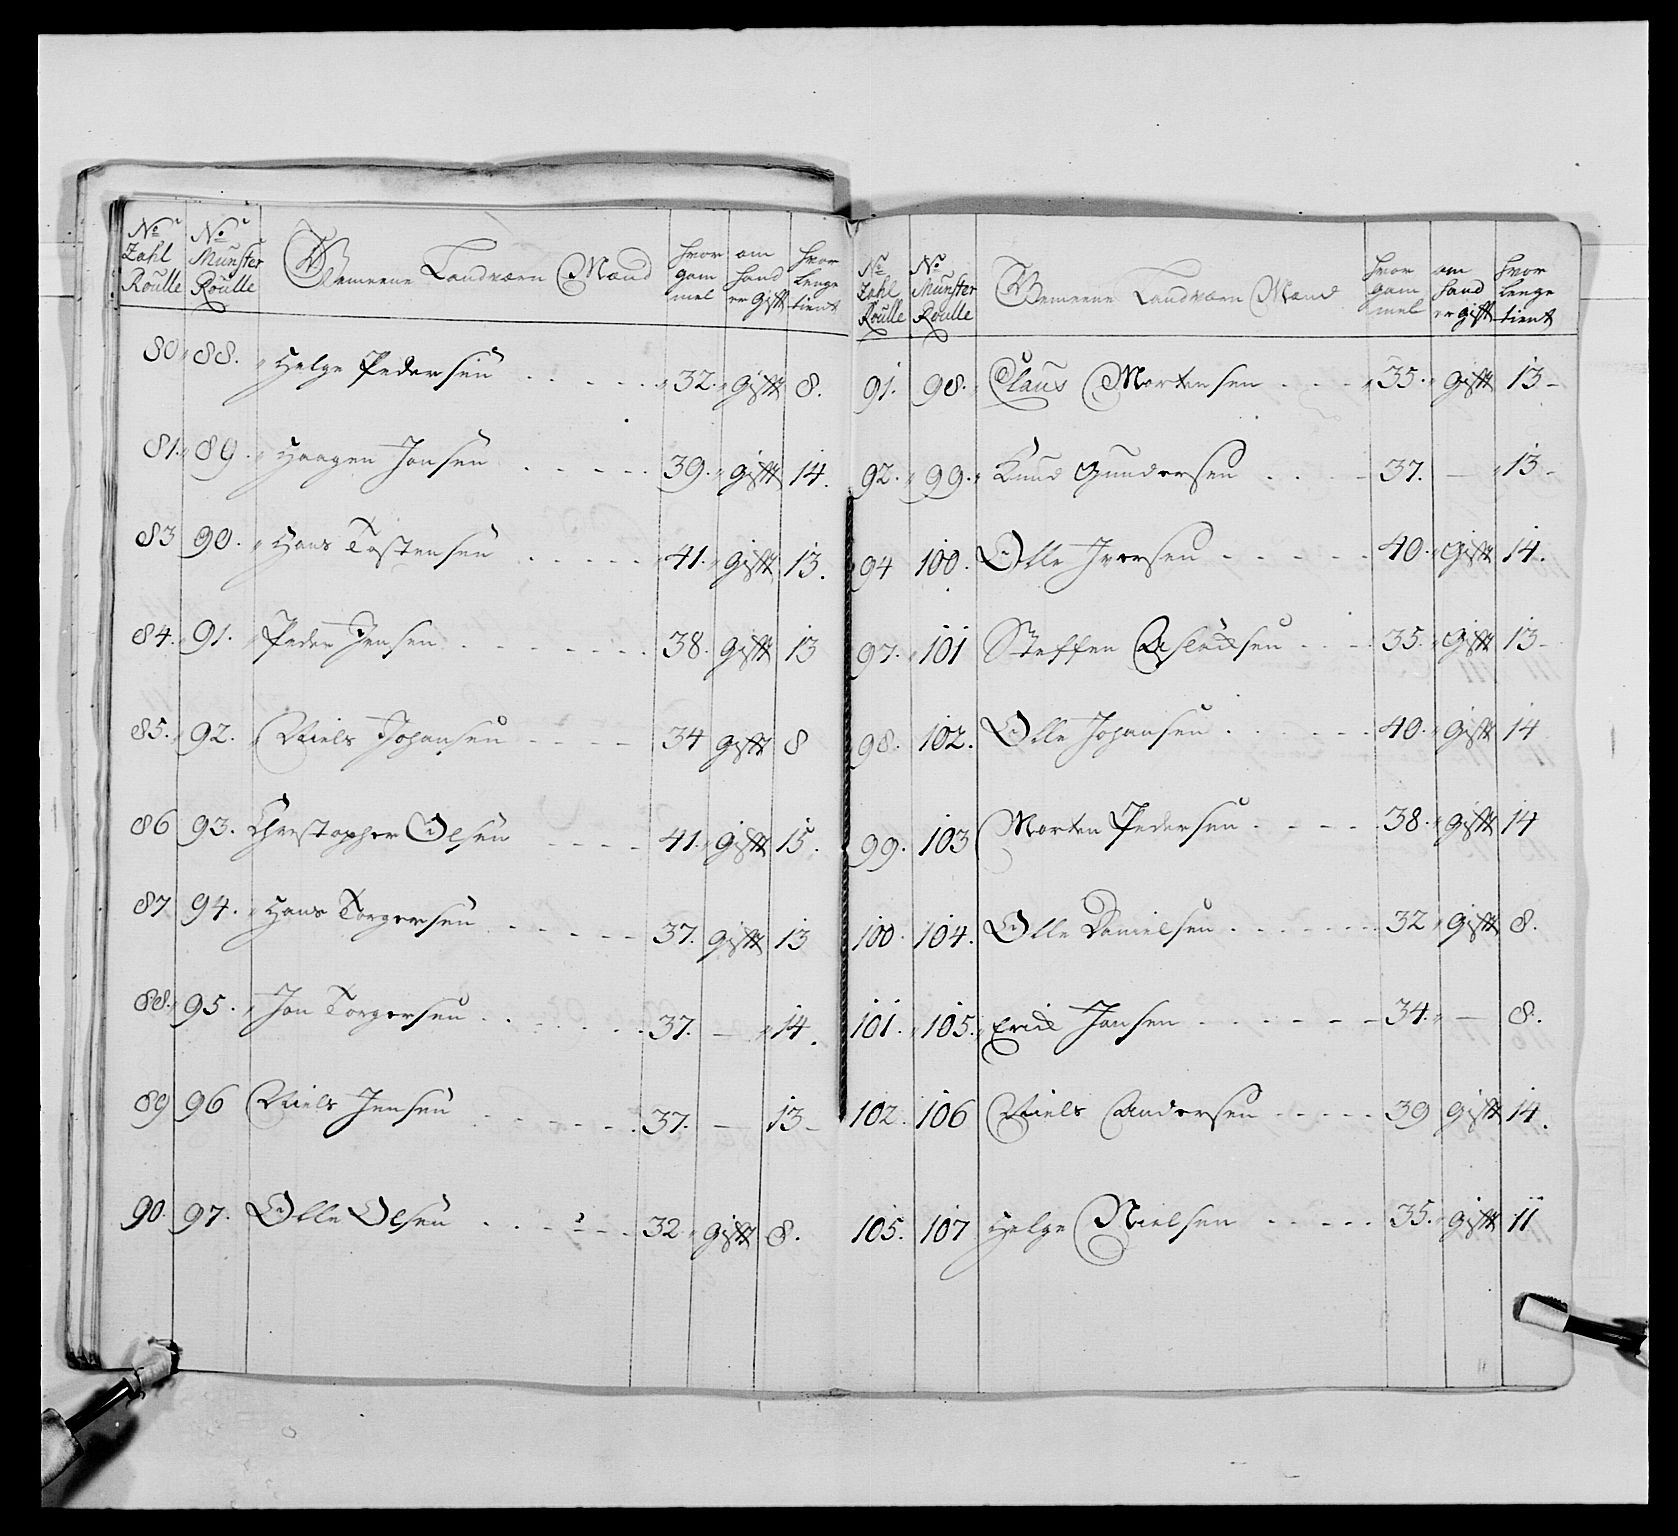 No Zahl Roulle | No Munster Roulle | Gemeene Landværn Mænd | hvor gam mel | om hand er gift | hvor lenge tient
80. 88. Helge Pedersen 32. gift 8.
81. 89. Haagen Jonsen 39. gift 14.
83 90. Hans Tostensen 41. gift 13.
84. 91. Peder Jensen 38. gift 13
85. 92. Niels Johansen 34 gift 8
86 93. Christopher Olsen 41. gift 15.
87 94. Hans Torgersen 37. gift 13
88. 95. Jon Torgersen 37. — 14.
89 96 Niels Jensen 37. — 13–
90. 97. Olle Olsen 32. gift 8.
No Zahl Roulle | No Munster Roulle | Gemeene Landværn Mænd | hvor gam mel | om hand er gift | hvor lenge tient
91. 98. Claus Mortensen 35. gift 13–
92. 99. Knud Gundersen 37. — 13–
94 100. Olle Iversen 40. gift 14.
97. 101 Steffen Aslacksen 35. gift 13–
98. 102. Olle Johansen 40. gift 14
99. 103 Morten Pedersen 38. gift 14
100. 104. Olle Danielsen 32 gift 8.
101. 105. Erick Jonsen 34. — 8.
102. 106 Niels Andersen 39 gift 14.
105. 107 Helge Nielsen 35. gift 11